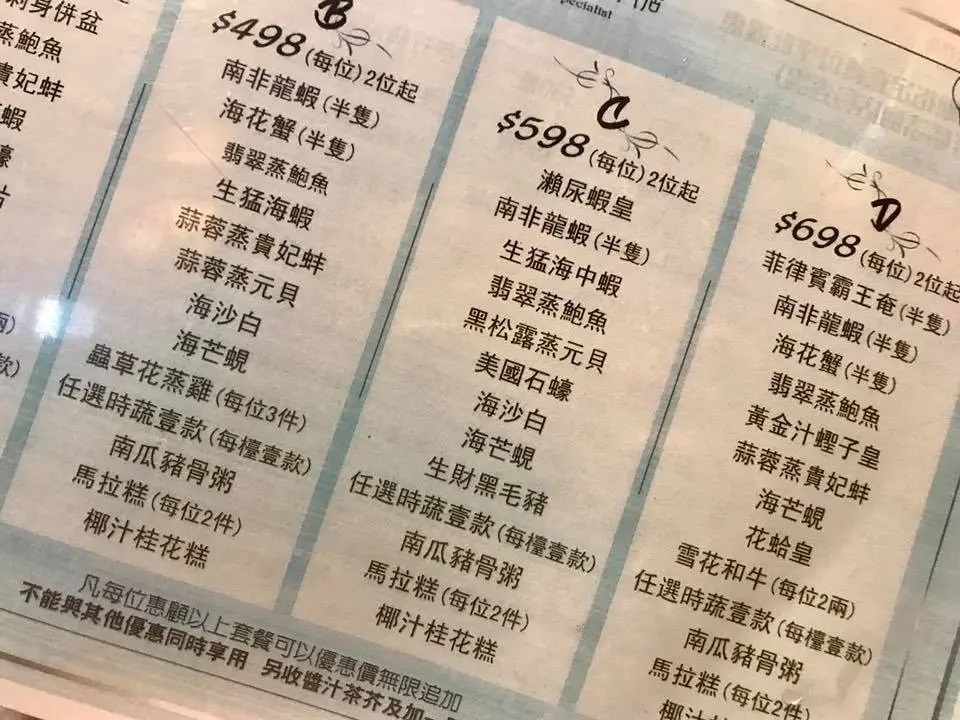 刺身併盆
蒸鮑魚
貴妃蚌
蝦
蠔
兩)
款)
B
$498 (每位) 2位起
南非龍蝦 (半隻)
海花蟹 (半隻)
翡翠蒸鮑魚
生猛海蝦
蒜蓉蒸貴妃蚌
蒜蓉蒸元貝
海沙白
海芒蜆
蟲草花蒸雞 (每位3件)
任選時蔬壹款 (每檯壹款)
南瓜豬骨粥
馬拉糕 (每位2件)
椰汁桂花糕
pecialist
C
$598 (每位) 2位起
瀨尿蝦皇
南非龍蝦 (半隻)
生猛海中蝦
翡翠蒸鮑魚
黑松露蒸元貝
美國石蠔
海沙白
海芒蜆
生財黑毛豬
任選時蔬壹款 (每檯壹款)
南瓜豬骨粥
馬拉糕 (每位2件)
椰汁桂花糕
D
$698 (每位) 2位起
菲律賓霸王奄 (半隻)
南非龍蝦 (半隻)
海花蟹 (半隻)
翡翠蒸鮑魚
黃金汁蟶子皇
蒜蓉蒸貴妃蚌
海芒蜆
花蛤皇
雪花和牛 (每位2兩)
任選時蔬壹款 (每檯壹款)
南瓜豬骨粥
馬拉糕 (每位2件)
椰汁
凡每位惠顧以上套餐可以優惠價無限追加
不能與其他優惠同時享用 另收醬汁茶芥及加一